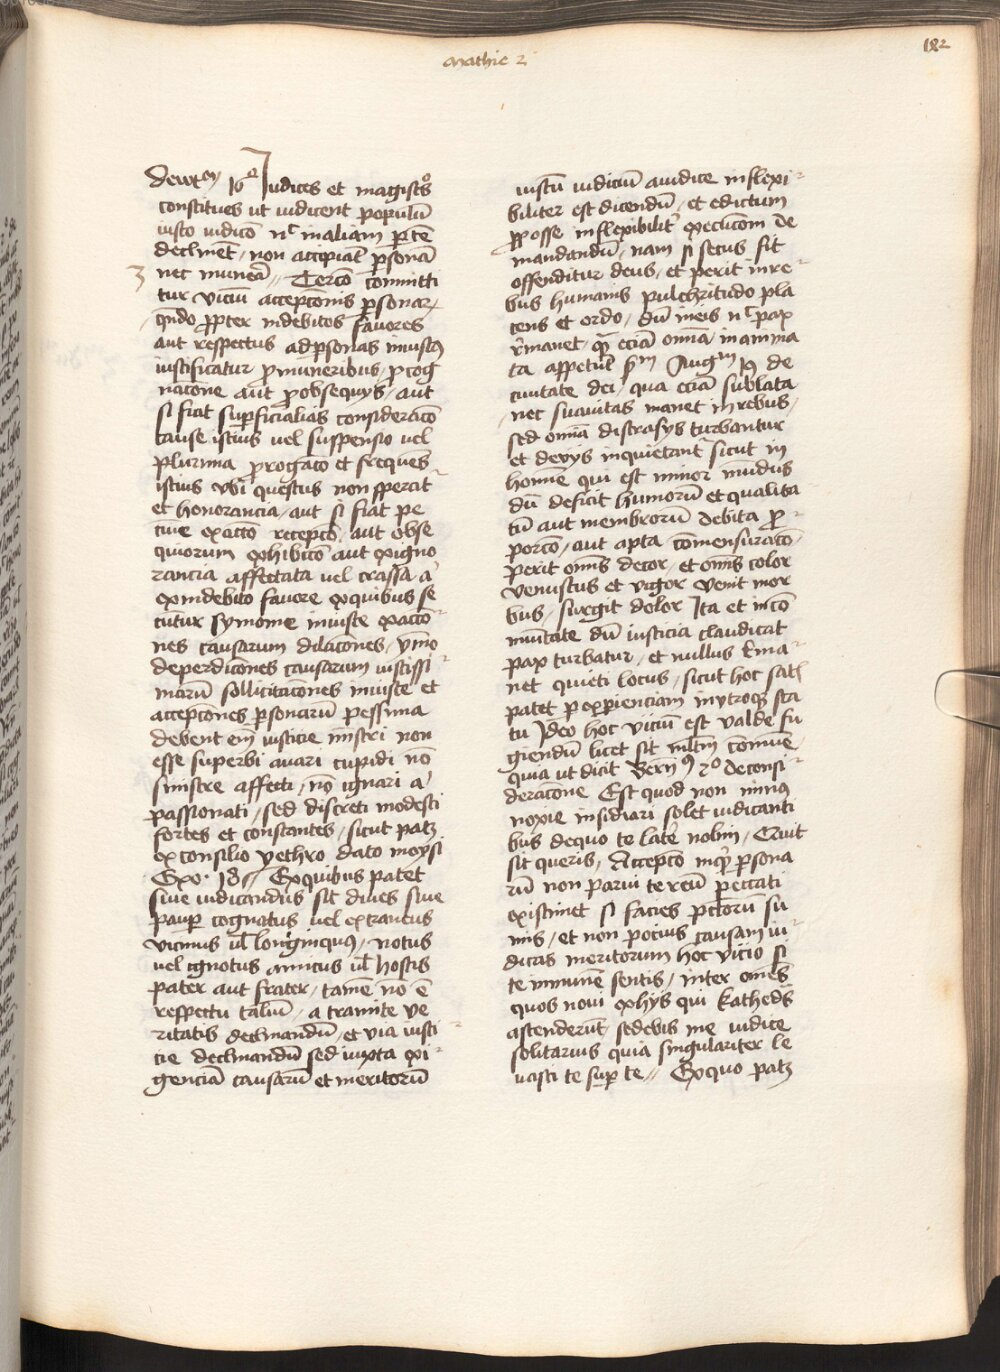 mathie 2
182
Deut͞m 16ᵒ Iudices et magist͛os
constitues ut iudicent populū
iusto iudico nᶜ in aliam p̱tē
declinēt, non accipiāt p̱sonā
3
nec munerā // Tercō committi
tur viciū accepcōnis p̱sonar̄
qn̄do ꝓpter indebitos fauores
aut respectus ad p̱sonas iniustꝰ
iustificatur p̱ muneribus, p̱ cog
nacōne aut p̱ obsequys, aut
si fiat sup̱ficialias consideracō
cause istius uel suspensio uel
plurima p̱rogacō et frequēs
istius vbi questus non sperat᷒
et honorancia, aut si fiat pe
cuīe exaccō recepcō, aut obse
quiorum exhibicō aut ex igno
rancia affectata uel crassa a͛
ex indebito fauore ex quibus se
cūtur symonie iniuste exaccō
nes causarum dilacōnes, ymo
deperdicōnes causarum iustissi
marū sollicitacōnes iniuste et
accepcōnes p̱sonarū pessima
debent em̄ iusticie mīstri non
esse superbi auari cupidi nō
sinistre affecti, nō ignari a͛
passionati, sed discreti modesti
fortes et constantes, sicut patꝫ
ex consilio yethro dato moysi
Exo. 18 // Ex quibus patet
siue iudicandus sit diues siue
paup̱ cognatus uel extraneus
vicinus ul̄ longinquꝰ, notus
uel ignotus amicus ul̄ hostis
pater aut frater, tamē nō ē
respectu taliū, a tramite ve
ritatis declinandū, et via iusti
cie declinandū sed iuxta exi
genciā causarū et meritorū
iustū iudiciū a iudice inflexi
biliter est dicendū, et edictum
ꝓ posse inflexibilit͛ execucom de
mandandū, nam si secus sit
offenditur deus, et perit in re
bus humanis pulchritudo pla
cens et ordo, dū meis nᶜ pax
r͛manet, q̄ eciā om̄ia inanima
ta appetūt s͞m Aug͞m 19 de
ciuitate dei, qua eciā sublata
nec suauitas manet in rebus,
sed om̄ia discrasys turbantur
et devys inquietant͛ sicut in
homīe qui est minor mūdus
dū deficit humorū et qualita
tū aut membrorū debita ꝓ
porcō, aut apta cōmensuracō
perit om̄is decor, et om̄is color
venustus et vigor venit mor
bus, surgit dolor Ita et in cō
mūitate dū iusticia claudicat
pax turbatur, et nullus r͛ma
net quieti locus, sicut hoc sat͛
patet p̱ exp̱ienciam in vtroqꝫ sta
tu Ideo hoc viciū est valde fu
giendū licet sit mltm̄ cōmūe
quia ut dicit Bern̄ꝰ 2ᵒ de consi
deracōne Est quod non minꝰ
noxie insidiari solet iudicanti
bus de quo te late͛ nolim, Quit
sit queris, Accepcō inqͥ p̱sona
rū non parui te reū peccati
existimet si facies pctōrū su
mis, et non pocius causam iu
dicas meritorum hoc vicio si
te inmunē sentis, inter om̄es
quos noui ex hys qui kathedꝭ
ascenderūt, sedebis me iudice
solitarius quia singulariter le
uasti te sup̱ te // Ex quo patꝫ